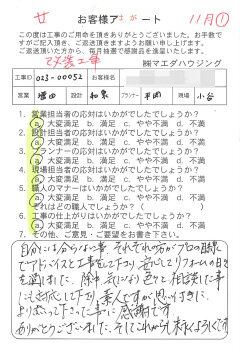 お客様アンケート 11月①
この度は工事のご用命を頂きありがとうございました。お手数で
すがご記入頂き、ご返送頂きますようお願い申し上げます。
ご返送頂いた方から、毎月抽選で感謝品を進呈いたします。
改装工事 ㈱マエダハウジング
工事ID 023-00052 お客様名
営業 増田 設計 和泉 プランナー 平田 現場 小谷
1. 営業担当者の応対はいかがでしたでしょうか?
a. 大変満足 b. 満足 c. 普通 d. やや不満 e. 不満
2. 設計担当者の応対はいかがでしたでしょうか?
a. 大変満足 b. 満足 c. 普通 d. やや不満 e. 不満
3. プランナーの応対はいかがでしたでしょうか?
a. 大変満足 b. 満足 c. 普通 d. やや不満 e. 不満
4. 現場担当者の応対はいかがでしたでしょうか?
a. 大変満足 b. 満足 c. 普通 d. やや不満 e. 不満
5. 職人のマナーはいかがでしたでしょうか?
a. 大変満足 b. 満足 c. 普通 d. やや不満 e. 不満
それはどの職人でしょうか?(
6. 工事の仕上がりはいかがでしたでしょうか?
a. 大変満足 b. 満足 c. 普通 d. やや不満 e. 不満
7. その他、ご意見・ご要望をお書き下さい。
自分には分らない事、それぞれの方がプロの目線
でアドバイスと工事をして下さり、安心してリフォームの日々
を過ごしました。途中、気になり色々と相談した事
にも対応して下り、素人ですが思い付きに
よりそって下さった事に感謝です。
ありがとうございました、そしてこれからも末永くよろしくです